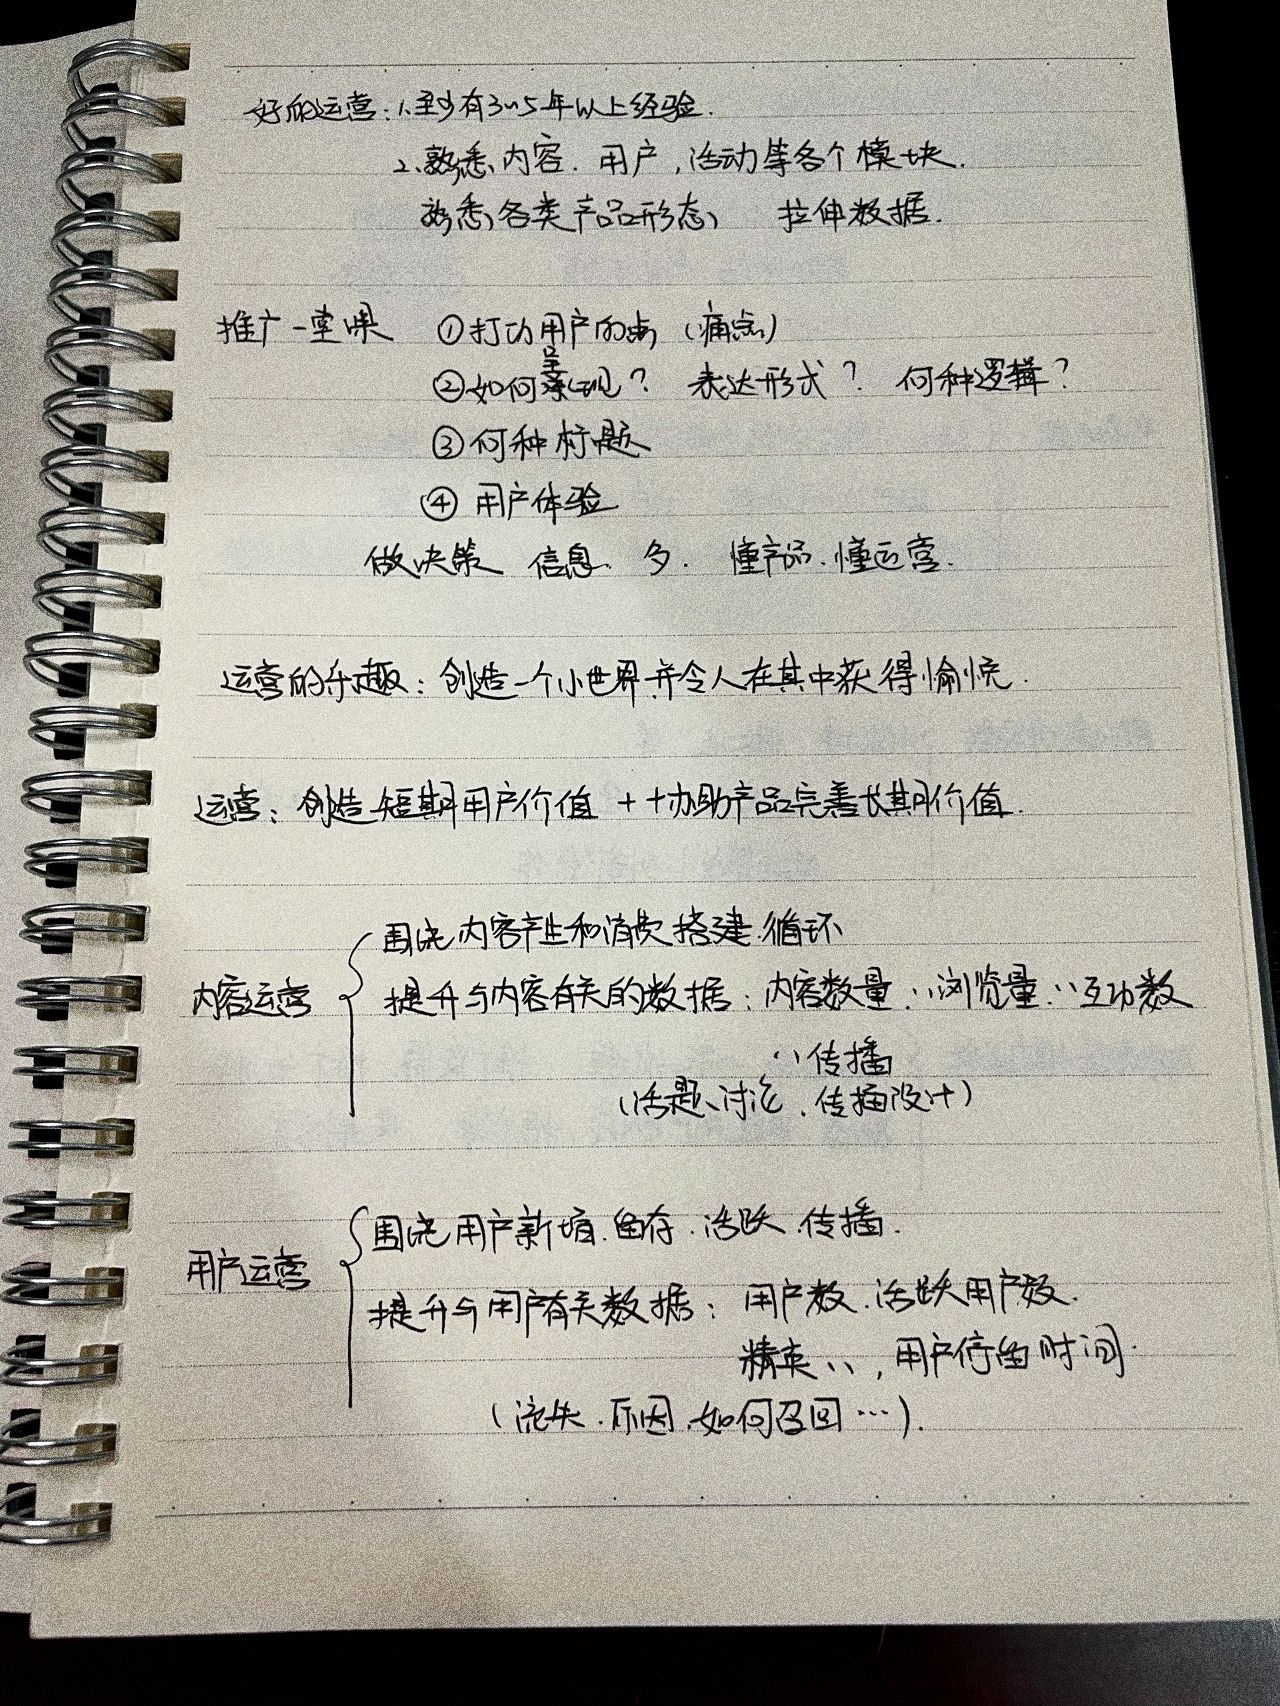 好的运营：1、至少有3~5年以上经验.
2、熟悉内容. 用户，活动等各个模块.
熟悉各类产品形态， 拉伸数据.
推广一堂课 ①打动用户的点（痛点）
②如何呈现？ 表达形式？ 何种逻辑？
③何种标题
④ 用户体验
做决策 信息. 多. 懂产品.懂运营.
运营的乐趣：创造一个小世界并令人在其中获得愉悦.
运营：创造短期用户价值 + 协助产品完善长期价值.
围绕内容产生和消费搭建循环
内容运营 提升与内容有关的数据：内容数量.〃浏览量.〃互动数
〃传播
（话题、讨论、传播设计）
围绕用户新增.留存.活跃.传播.
用户运营
提升与用户有关数据：用户数.活跃用户数.
精英〃，用户停留时间.
（流失.原因.如何召回…）.